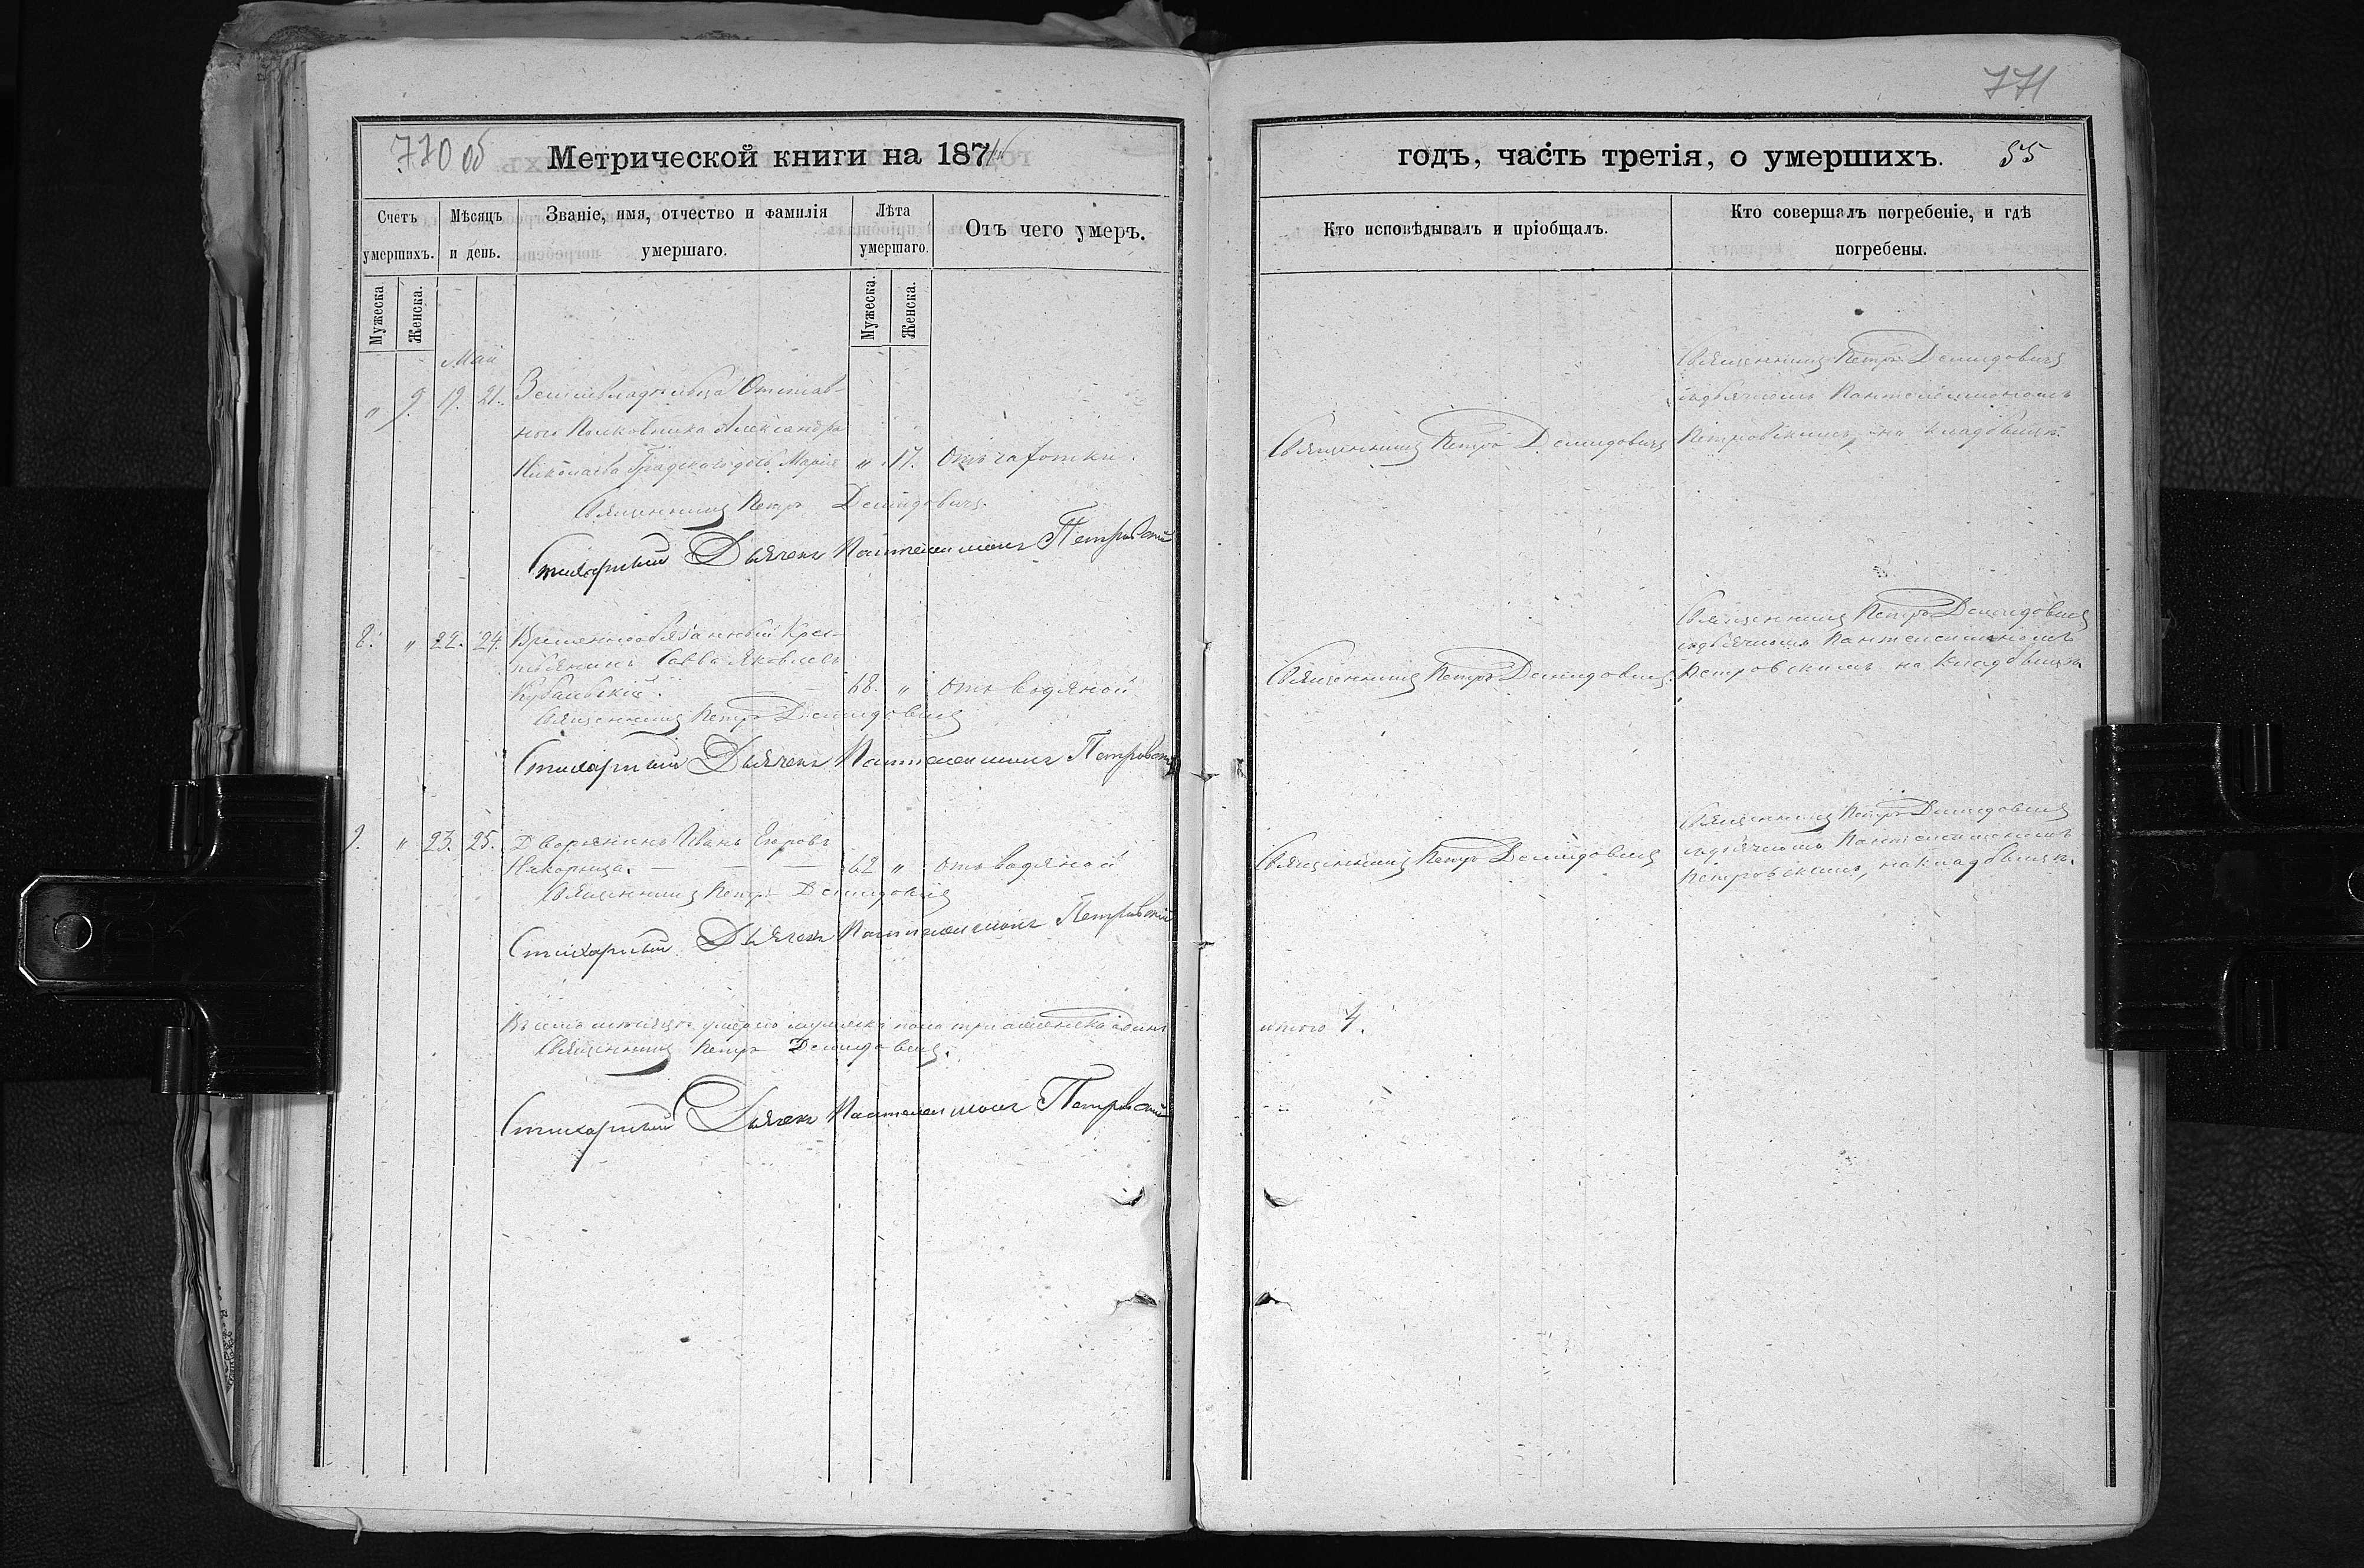 770 об
Метрической книги на 1871
Счетъ умершихъ.
Мѣсяцъ и день.
Званіе, имя, отчество и фамилія умершаго.
Лѣта умершаго.
Отъ чего умеръ.
Мужеска
Женска.
Мужеска.
Женска.
Май
" 9. 19. 21. Землевладѣльца Отстав-
ного Полковника Александра
Николаева Градскаго дочь Марія " 17. Отъ чахотки.
Священникъ Петръ Демидовичъ.
Стихарный Дьячекъ Пантелеимонъ Петровскій
8. " 22. 24. Временнообязанный Кре-
стьянинъ Савва Яковлевъ
68. " Отъ водяной
Священникъ Петръ Демидовичъ
Стихарный Дьячекъ Пантелеимонъ Петровскій
9. " 23. 25. Дворянинъ Иванъ Егоровъ
62 " Отъ водяной
Священникъ Петръ Демидовичъ
Стихарный Дьячекъ Пантелеимонъ Петровскій
Въ семъ мѣсяцѣ умерло мужеска пола три а женска одинъ
Священникъ Петръ Демидовичъ.
Стихарный Дьячекъ Пантелеимонъ Петровскій
771
годъ, часть третія, о умершихъ.
55
Кто исповѣдывалъ и пріобщалъ.
Кто совершалъ погребеніе, и гдѣ погребены.
Священникъ Петръ Демидовичъ
Священникъ Петръ Демидовичъ
съ дьячкомъ Пантелеимономъ
Петровскимъ, на кладбищѣ.
Священникъ Петръ Демидовичъ.
Священникъ Петръ Демидовичъ
съ дьячкомъ Пантелеимономъ
Петровскимъ на кладбищѣ
Священникъ Петръ Демидовичъ
Священникъ Петръ Демидовичъ
съ дьячкомъ Пантелеимономъ
Петровскимъ, на кладбищѣ.
итого 4.